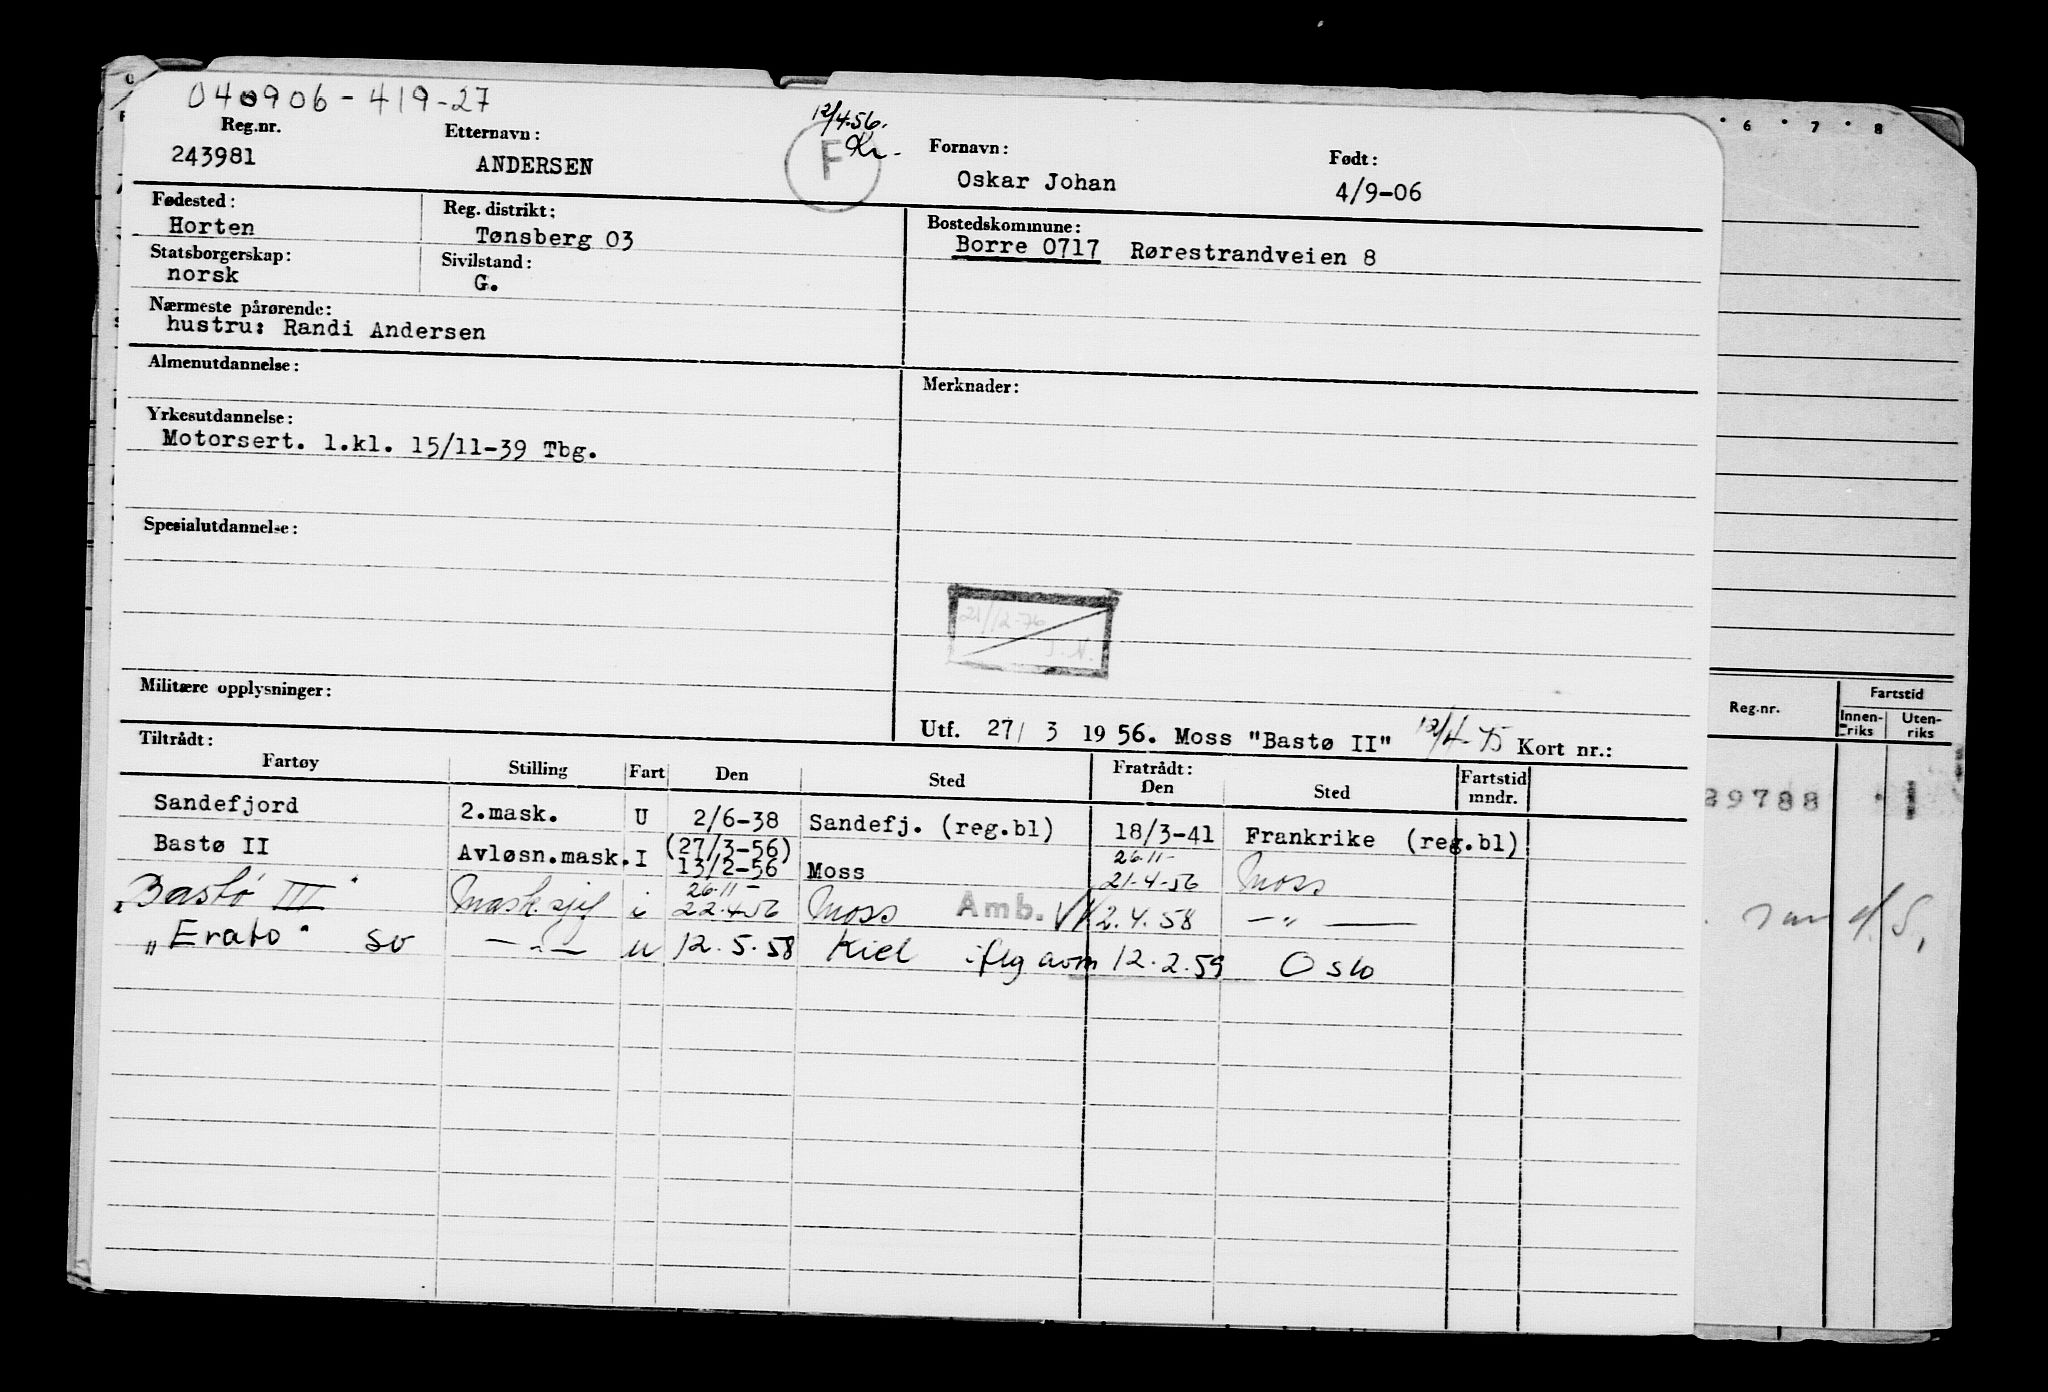 040906-419-27
12/4.56.
Reg.nr. Etternavn: F Kr. Fornavn: Født:
243981 ANDERSEN Oskar Johan 4/9-06
Fødested: Reg. distrikt: Bostedskommune:
Horten Tønsberg 03 Borre 0717 Rørestrandveien 8
Statsborgerskap: Sivilstand:
norsk G.
Nærmeste pårørende:
hustru: Randi Andersen
Almenutdannelse: Merknader:
Yrkesutdannelse:
Motorsert. 1.kl. 15/11-39 Tbg.
Spesialutdannelse:
21/12-76
J.N.
Militære opplysninger:
Utf. 27/ 3 1956. Moss "Bastø II" 12/4-75 Kort nr.:
Tiltrådt: Fratrådt:
Fartøy Stilling Fart Den Sted Den Sted Fartstid mndr.
Sandefjord 2.mask. U 2/6-38 Sandefj. (reg.bl) 18/3-41 Frankrike (reg.bl)
Bastø II Avløsn.mask. I (27/3-56) 13/2-56 Moss 26-11- 21-4-56 Moss
"Bastø III" Mask.sjef i 26-11- 22.4.56 Moss Amb. 2.4.58 —"—
"Erato" SV —"— u 12.5.58 Kiel iflg avm 12.2.59 Oslo
6 7 8
Reg.nr. Fartstid
Innen-riks Uten-riks
39788